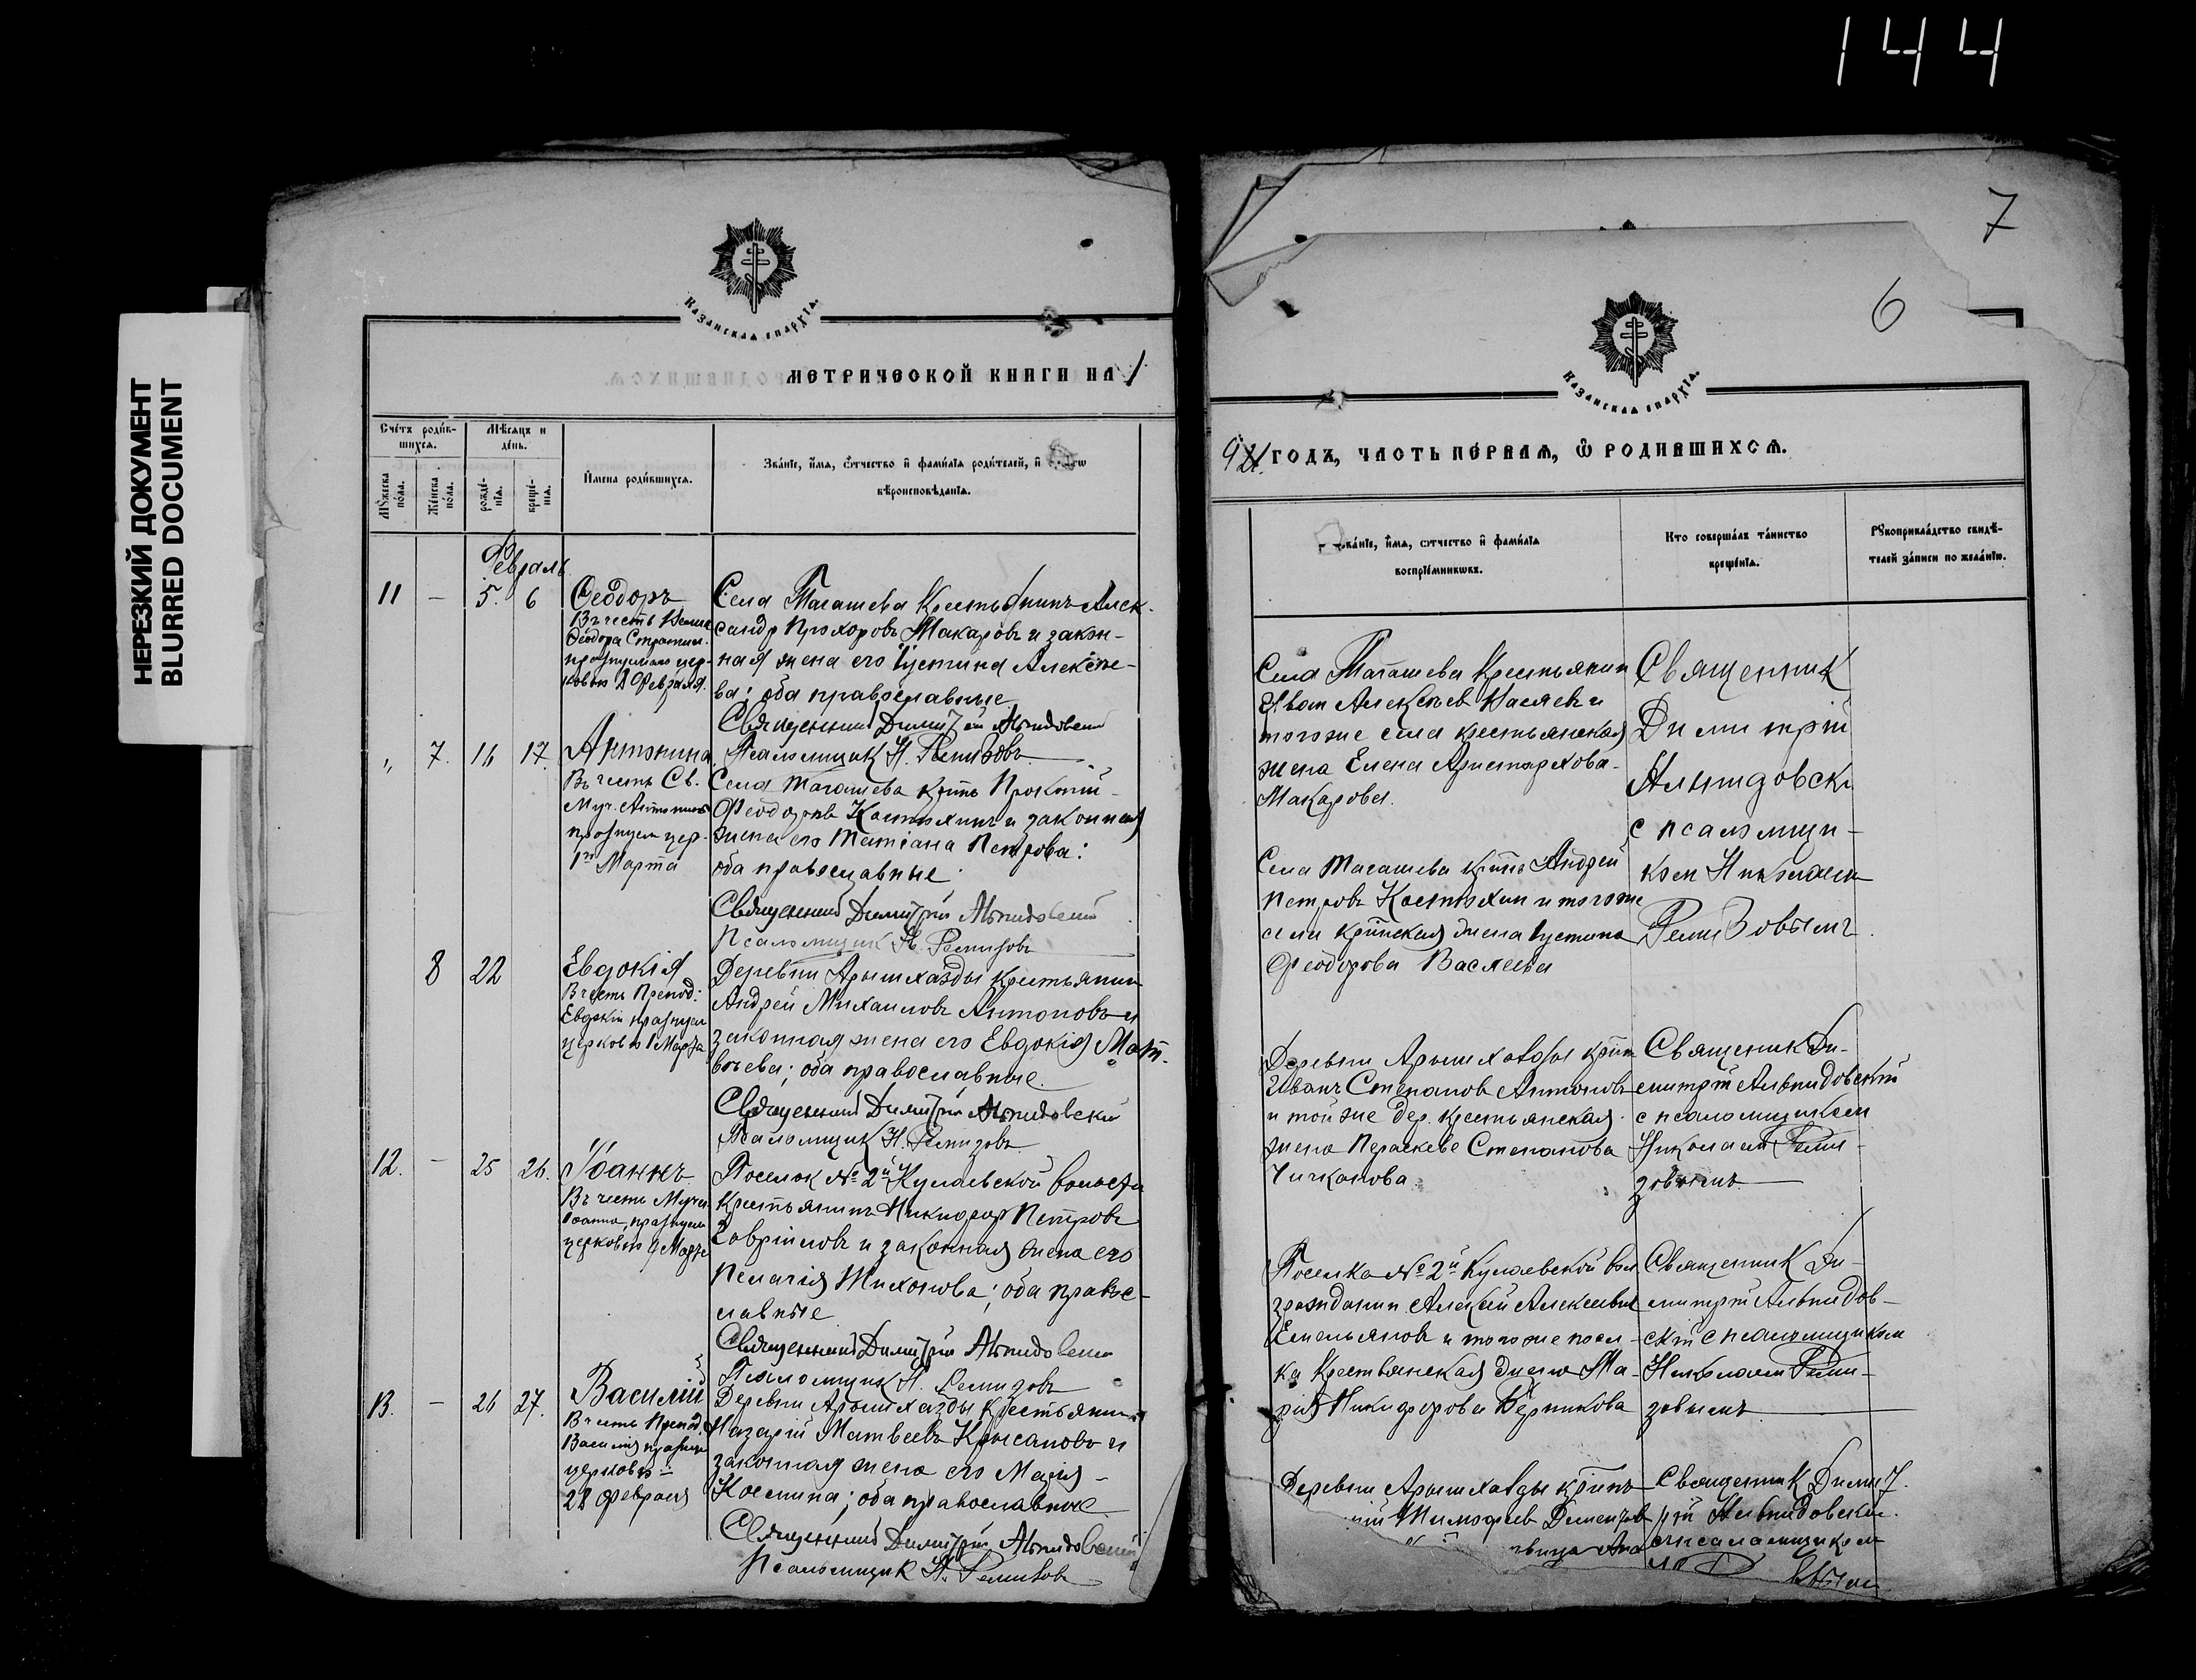 144
НЕРЕЗКИЙ ДОКУМЕНТ
BLURRED DOCUMENT
7
6
КАЗАНСКАЯ ЕПАРХІЯ.
МЕТРИЧЕСКОЙ КНИГИ НА 1
Счетъ родив-
шихся.
Мужеска
пола.
Женска
пола.
Мѣсяцъ и
день.
рожде-
нія.
креще-
нія.
Имена родившихся.
Званіе, имя, отчество и фамилія родителей, и
вѣроисповѣданія.
Февраль
11 – 5. 6
Ѳеодоръ
Въ честь
Ѳеодора Стратил.
празднуемаго цер-
ковью 8 Февраля.
Села Тагашева Крестьянинъ Алек-
сандр Прохоровъ Макаровъ и закон-
ная жена его Іустина Алексѣе-
ва; оба православные
Священникъ Димитрій
Псаломщик Н. Ремизовъ
„ 7. 16 17.
Антонина
Въ честь Св.
Муч. Антонины
празднуем цер.
1го Марта
Села Тагашева крнъ
Феодоровъ Костюхинъ и законная
жена его Татіана Петрова:
оба православные
Священникъ Димитрій
Псаломщик Н. Ремизовъ
8 22
Евдокія
В честь Препод:
Евдокіи празднуем
церковью 1 Марта
Деревни Арышхазды Крестьянин
Андрей Михаиловъ Антоновъ и
законная жена его Евдокія Мат-
вѣева; оба православные
Священникъ Димитрій
Псаломщик Н. Ремизовъ
12. – 25 26.
Іоаннъ
Въ честь Мучен.
Іоанна, празднуем
церковью 9 Марта
Поселок № 2й Кулаевской волости
Крестьянинъ Никифор Петровъ
Гавріиловъ и законная жена его
Пелагія Тихонова; оба правос-
лавные
Священникъ Димитрій
Псаломщик Н. Ремизовъ
13. – 26 27.
Василій
В честь Препод.
Василія празднуем
церковью
28 Февраля
Деревни Арышхазды Крестьянин
Назарій Матвеевъ Крысановъ и
законная жена его Марія
Космина; оба православные
Священникъ Димитрій
Псаломщик Н. Ремизовъ
КАЗАНСКАЯ ЕПАРХІЯ.
921. ГОДЪ, ЧАСТЬ ПЕРВАЯ, Ѡ РОДИВШИХСЯ.
Званіе, имя, отчество и фамилія
воспріемниковъ.
Кто совершалъ таинство
крещенія.
Рукоприкладство свидѣ-
телей записи по желанію.
Села Тагашева Крестьянин
Иван Алексѣев Васяевъ и
тогоже села крестьянская
жена Елена Аристархова
Макарова.
Священник
Димитрій
с псаломщи-
ком Николаем
Ремизовымъ
Села Тагашева крнъ Андрей
Петровъ Костюхин и тогоже
села крнская жена Іустина
Феодорова Васяева
Деревни Арышхазды крнъ
Иванъ Степанов Антоновъ
и той же дер. крестьянская
жена Параскева Степанова
Чичканова
Священик Ди-
митрій
с псаломщиком
Николаем Реми-
зовымъ
Поселка № 2й Кулаевской вол
гражданин Алексѣй Алексѣевъ
Емельянов и тогоже посел-
ка Крестьянская жена Ма-
рія Никифорова
Священник Ди-
митрій
с псаломщиком
Николаем Реми-
зовымъ
Деревни Арышхазды крнъ
Тимофеев
Священник Димит-
рій
с псаломщиком